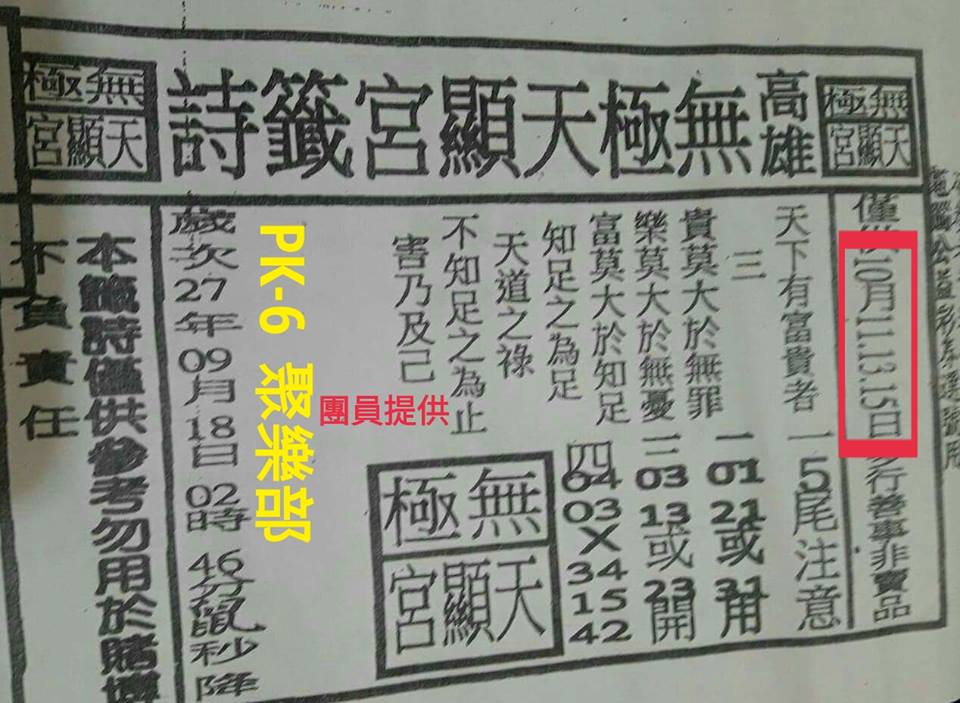 無極
天顯宮
高雄
無極天顯宮籤詩
無極
天顯宮
僅供10月11.13.15日
行善事非賣品
天下有富貴者
一5尾注意
三
貴莫大於無罪
二01 21或31用
樂莫大於無憂
三03 13或23開
富莫大於知足
四04 03X34 15 42
知足之為足
天道之祿
不知足之為止
害乃及己
無極
天顯宮
團員提供
PK-6 聚樂部
歲次27年09月18日02時46分鼠秒降
本籤詩僅供參考勿用於賭博
不負責任